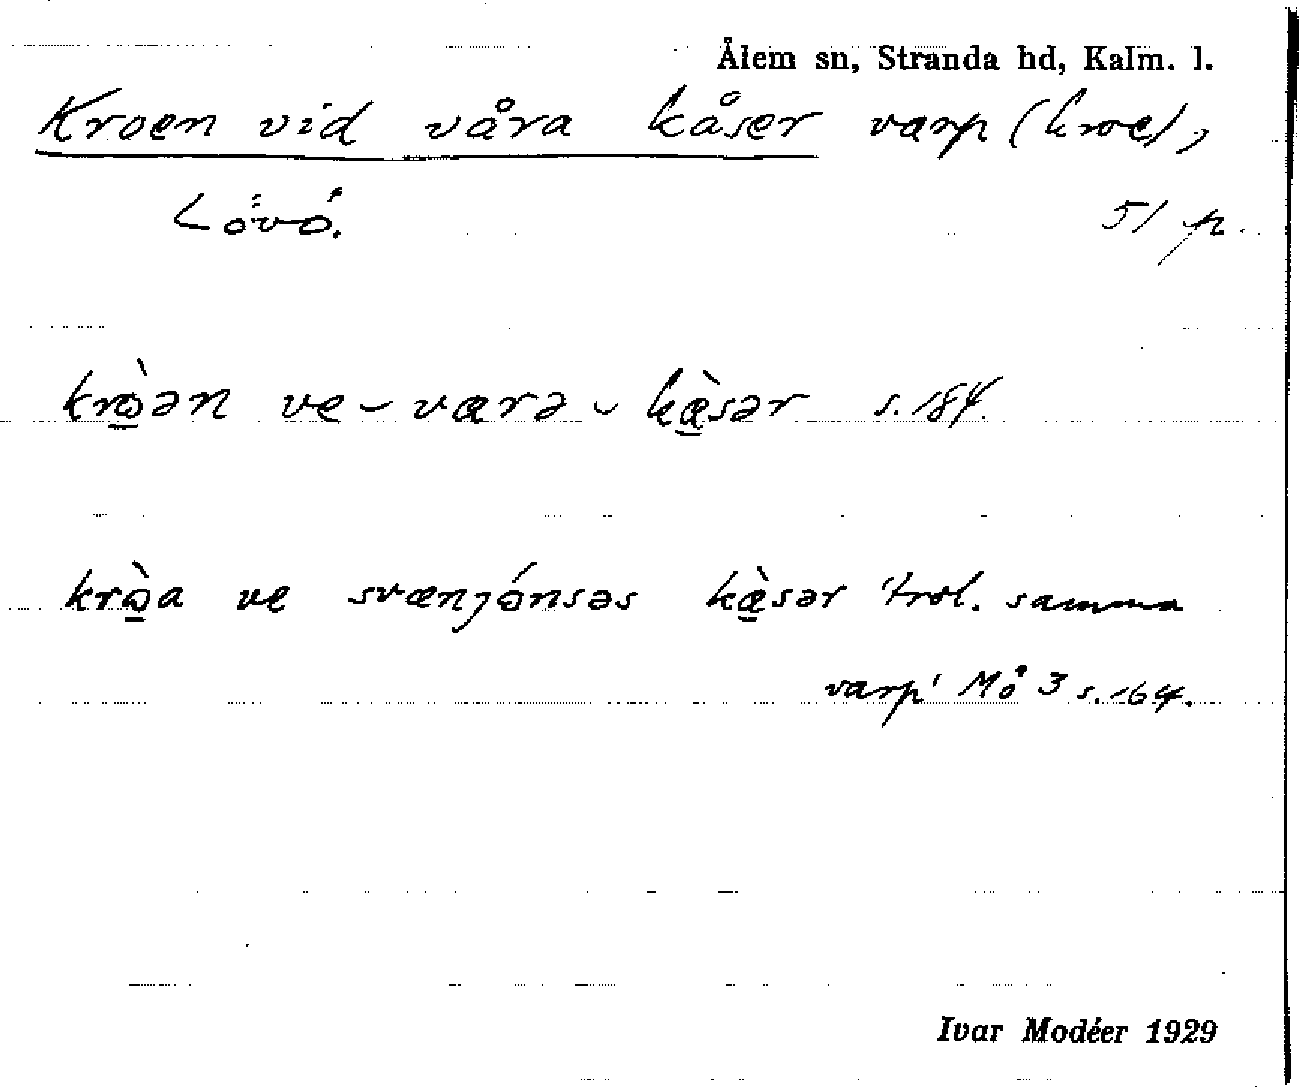 Ålem sn, Stranda hd, Kalm. l.
Kroen vid våra kåser varp (kroe),
Lövö. 51 p.
krὼ̠ən ve-værə-kæ̠̀sər s. 184.
krὼ̠a ve svænȷónsəs kæ̠̀sər 'trol. samma
varp' Mö 3 s. 164.
Ivar Modéer 1929